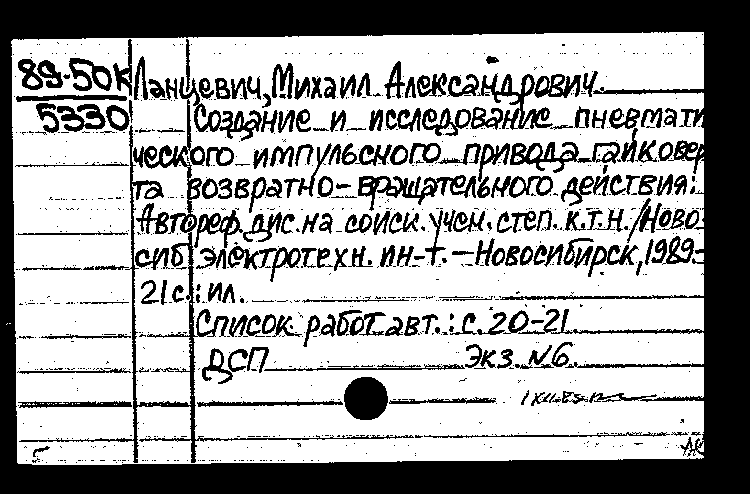 89-50к Ланцевич, Михаил Александрович.
5330 Создание и исследование пневмати
ческого импульсного привода гайковер
та возвратно-вращательного действия:
Автореф. дис. на соиск. учен. степ. к.т.н. /Ново-
сиб электротехн. ин-т. - Новосибирск, 1989.-
21 с.: ил.
Список работ авт.: с. 20-21.
ДСП Экз. №6.